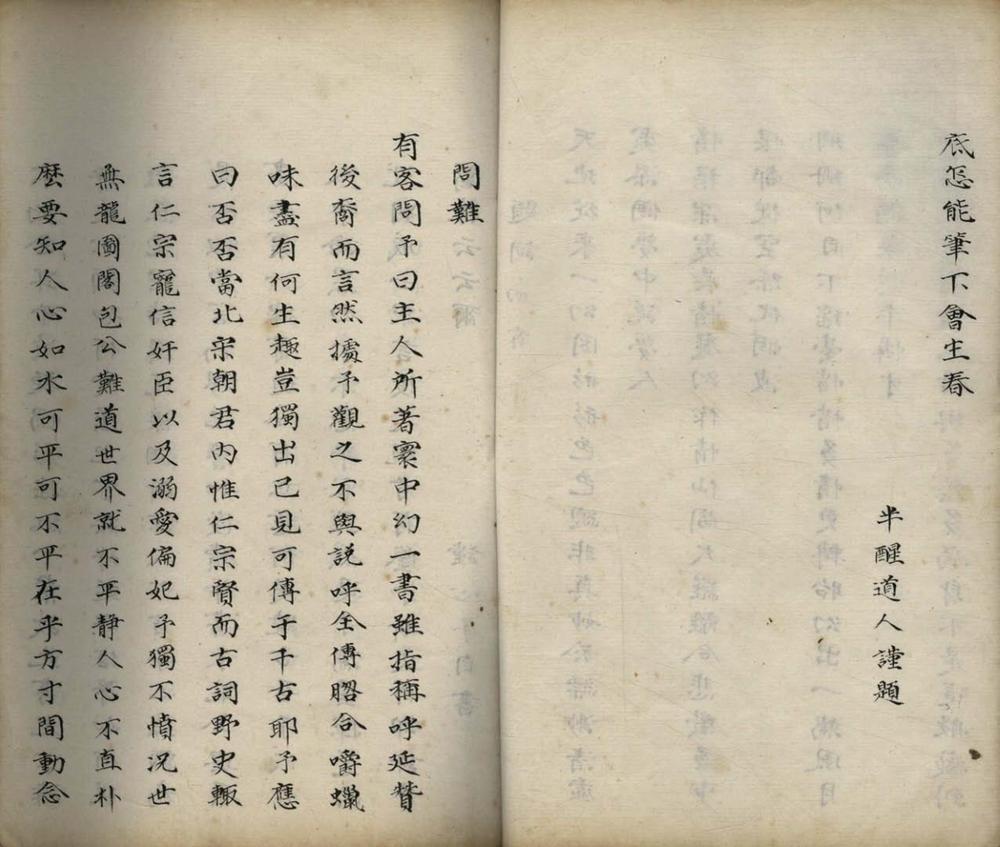 底怎能筆下會生春
半醒道人謹題
問難
有客問予曰主人所著寰中幻一書雖指稱呼延贊
後裔而言然據予觀之不與說呼全傳吻合嚼蠟
味盡有何生趣豈獨出己見可傳于千古耶予應
曰否否當北宋朝君內惟仁宗賢而古詞野史輙
言仁宗寵信奸臣以及溺愛偏妃予獨不憤况世
無龍圖閣包公難道世界就不平靜人心不直朴
麽要知人心如水可平可不平在乎方寸間動念